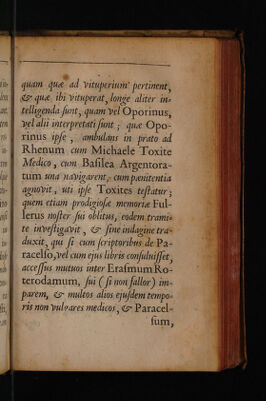 quam quæ ad vituperium pertinent,
& quæ ibi vituperat, longe aliter in-
telligenda sunt, quam vel Oporinus,
vel alii interpretati sunt; quæ Opo-
rinus ipse, ambulans in prato ad
Rhenum cum Michaele Toxite
Medico, cum Basilea Argentora-
tum una navigarent, cum pœnitentia
agnovit, uti ipse Toxites testatur;
quem etiam prodigiosæ memoriæ Ful-
lerus noster sui oblitus, eodem trami-
te investigavit, & sine indagine tra-
duxit, qui si cum scriptoribus de Pa-
racelso, vel cum ejus libris consuluisset,
accessus mutuos inter Erasmum Ro-
terodamum, sui (si non fallor) im-
parem, & multos alios ejusdem tempo-
ris non vulgares medicos, & Paracel-
sum,